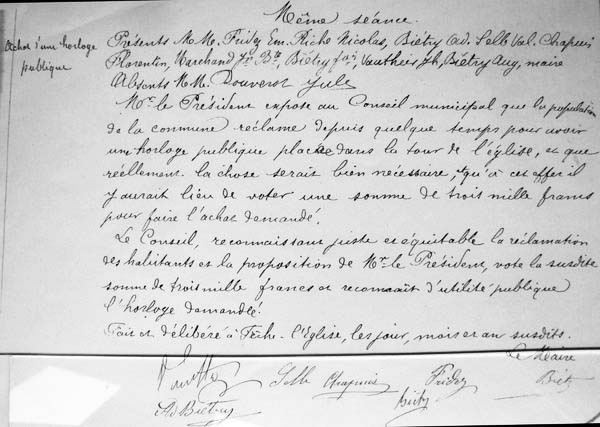 Même séance.
Achat d'une horloge
publique
Présents M.M. Fridez Em. Riche Nicolas, Biétry Ad. Selle Val. Chapuis
Florentin, Marchand Jn Bte, Biétry fois, Vauthier Jh, Biétry Aug, maire
Absents M.M. Douverot Jule
Mr. le Président expose au Conseil municipal que la population
de la commune réclame depuis quelque temps pour avoir
une horloge publique placée dans la tour de l'église, et que
réellement la chose serait bien nécessaire, qu'à cet effet il
y aurait lieu de voter une somme de trois mille francs
pour faire l'achat demandé.
Le Conseil, reconnaissant juste et équitable la réclamation
des habitants et la proposition de Mr. le Président, vote la susdite
somme de trois mille francs et reconnaît d'utilité publique
l'horloge demandée.
Fait et délibéré à Fêche l'Eglise, les jour, mois et an susdits.
Le Maire
Selle Chapuis Fridez Biétry
Ad Biétry Biétry